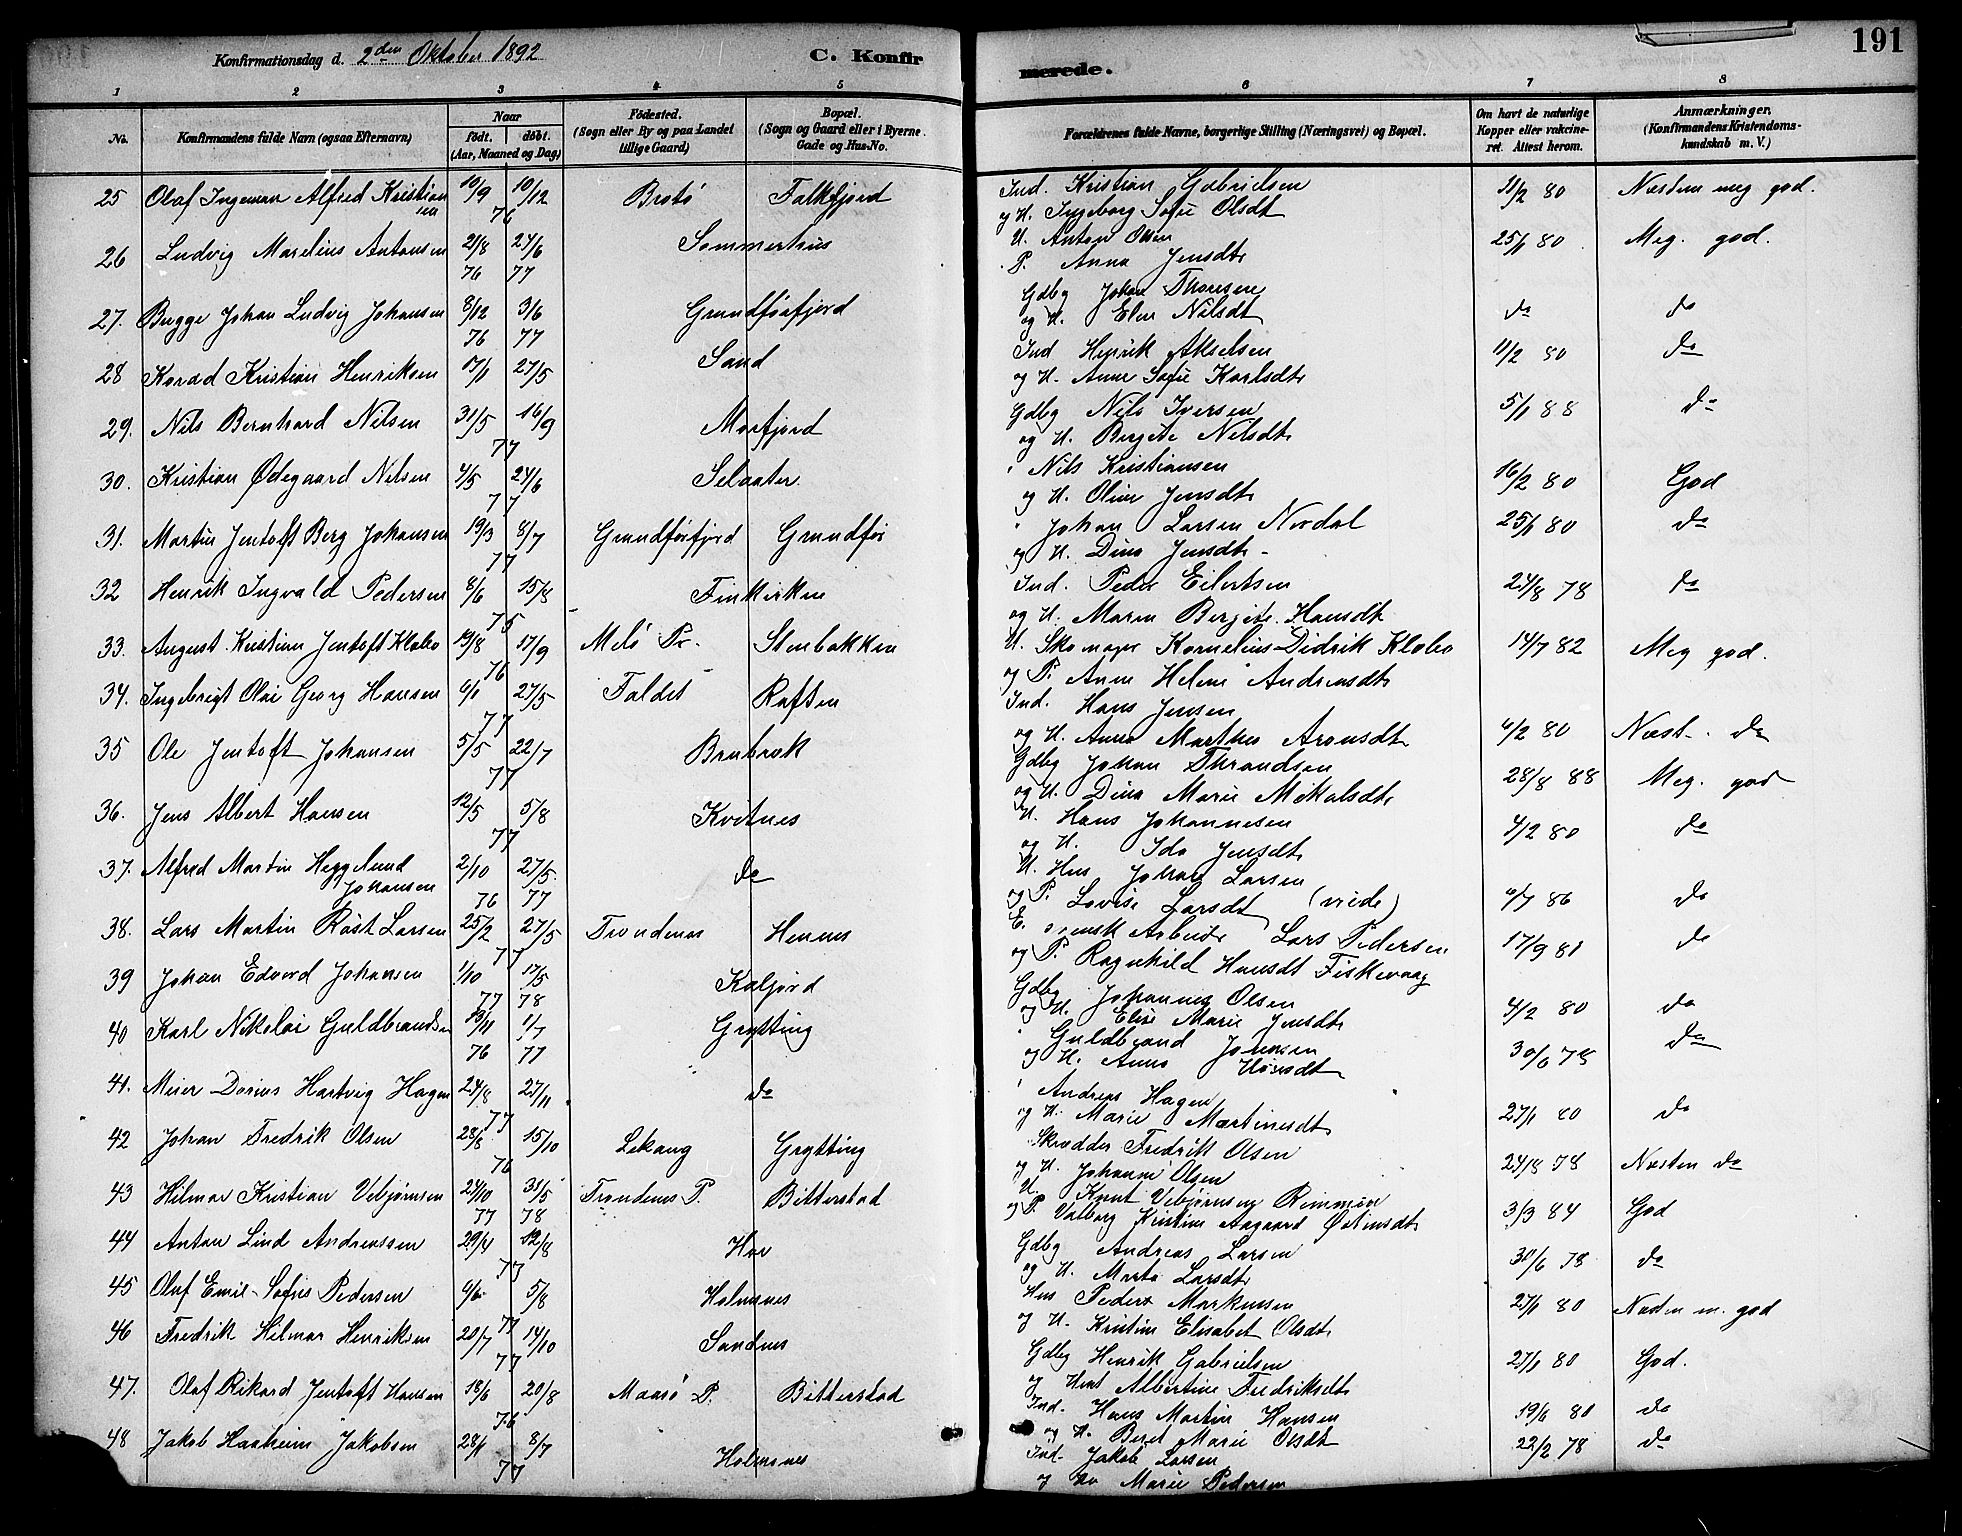 Konfirmationsdag d. 2den Oktober 1892
C. Konfirmerede.
191
1 2 3 4 5 6 7 8
No. Konfirmandens fulde Navn (ogsaa Efternavn) Naar født. døbt. (Aar, Maaned og Dag) Födested. (Sogn eller By og paa Landet tillige Gaard) Bopæl. (Sogn og Gaard eller i Byerne Gade og Hus-No. Forældrenes fulde Navne, borgerlige Stilling (Næringsvei) og Bopæl. Om havt de naturlige Kopper eller vakcineret. Attest herom. Anmærkninger, (Konfirmandens Kristendomskundskab m. V.)
25 Olaf Ingeman Alfred Kristiansen 10/9 10/12 76 Brotö Falkfjord Ind. Kristian Gabrielsen 11/2 80 Næsten meg god.
og H. Ingeborg Sofie Olsdt
26 Ludvig Marelius Antonsen 21/8 76 24/6 77 Sommerhus U. Anton Olsen 25/1 80 Meg. god.
P. Anna Jensdt
27. Bugge Johan Ludvig Johansen 8/12 76 3/6 77 Grundförfjord Gdbg Johan Thoresen do do
og H. Elen Nilsdt
28 Konrad Kristian Henriksen 17/1 27/5 Sand Ind Henrik Akselsen 11/2 80 do
og H. Anne Sofie Karlsdt
29. Nils Bernhard Nilsen 31/5 16/9 77 Morfjord Gdbg Nils Iversen 5/1 88 do
og H. Bergete Nilsdt
30. Kristian Ødegaard Nilsen 4/5 24/6 77 Selaater Nils Kristiansen 16/2 80 God
og H. Oline Jensdt
31. Martin Jentoft Berg Johansen 19/3 8/7 77 Grundförfjord Grundför Johan Larsen Nordal 25/1 80 do
og H. Dina Jensdt
32 Henrik Ingvald Pedersen 8/6 15/8 75 Finkirken Ind. Peder Eilertsen 24/8 78 do
og H. Maren Bergete Hansdt
33. August Kristian Jentoft Klæbo 19/8 17/9 76 Melö Pr. Stenbakken U. Skomager Kornelius Didrik Klæbo 14/7 82 Meg god.
og P. Anne Helene Andreasdt
34. Ingebrigt Olai Georg Hansen 6/1 27/5 77 Faldet Raften Ind. Hans Jensen 4/2 80 Næst. do
og H. Anne Marthea Aronsdt
35 Ole Jentoft Johansen 5/5 22/7 77 Brubræk Gdbg Johan Throndsen 28/8 88 Meg. god
og H. Dina Marie Mikalsdt
36. Jens Albert Hansen 12/5 5/8 77 Kvitnes U. Hans Johannesen 4/2 80 do
og H. Ida Jensdt
37. Alfred Martin Heggelund Johansen 2/10 76 27/5 77 do U. Hus Johan Larsen 6/7 86 do
og P. Lovise Larsdt
38. Lars Martin Røst Larsen 25/2 27/5 77 Trondenæs Hennes E. svensk Arbeider Lars Pedersen 17/9 81 do
og P. Ragnhild Hansdt Fiskevaag
39 Johan Edvard Johansen 1/10 77 17/5 78 Kaljord Gdbg Johannes Olsen 4/2 80 do
og H. Elise Marie Jensdt
40 Karl Nikolai Guldbrandsen 13/11 76 1/7 77 Grytting Guldbrand Jensen 30/6 78 do
og H. Anna
41. Meier Dorius Hartvig Hagen 24/8 25/11 77 do Andreas Hagen 27/1 80 do
og H. Marie Martinusdt
42 Johan Fredrik Olsen 28/8 15/10 76 Lekang Grytting Skrædder Fredrik Olsen 24/8 78 Næsten do
og H. Johanne Olsen
43 Hilmar Kristian Vebjørnsen 24/10 77 31/5 78 Trondenes P. Bitterstad U. Knut Vebjørnsen 3/3 84 God
og P. Valborg Kristine Aagaard Østensdt
44 Anton Lind Andreassen 29/4 12/8 77 Hov Gdbg Andreas Larsen 30/6 78 do
og H. Marta Larsdt
45 Oluf Emil Sofus Pedersen 6/6 5/8 77 Holmsnes Hus Peder Markussen 27/1 80 Næsten m. god
og H. Kristine Elisabet Olsdt
46 Fredrik Hilmar Henriksen 20/7 14/10 77 Sandnes Gdbg Henrik Gabrielsen 27/1 80 God.
og Hust Albertine Fredriksdt
47. Olaf Rikard Jentoft Hansen 18/6 20/8 76 Maasö P. Bitterstad Ind. Hans Martin Hansen 19/6 80 do
og H. Beret Marie Olsdt
48 Jakob Haaheim Jakobsen 28/1 8/7 77 Holmsnes Ind. Jakob Larsen 22/2 78 do
og Marie Pedersen